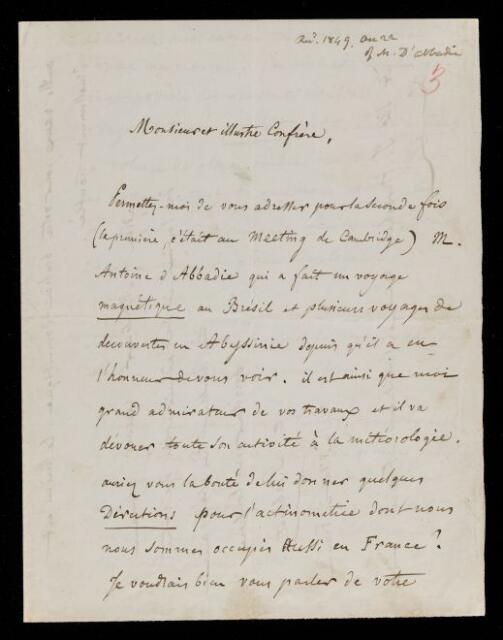 Recd. 1849. Oct 22
of M. D'Abbadie
3
Monsieur et illustre Confrère,
Permettez-moi de vous adresser pour la seconde fois
(la première, c'était au Meeting de Cambridge) M.
Antoine d'Abbadie qui a fait un voyage
magnétique au Brésil et plusieurs voyages de
decouvertes en Abyssinie depuis qu'il a eu
l'honneur de vous voir. il est ainsi que moi
grand admirateur de vos travaux et il va
dévouer toute son activité à la météorologie.
auriez vous la bonté de lui donner quelques
Directions pour l'actinometrie dont nous
nous sommes occupés Aussi en France?
Je voudrais bien vous parler de votre